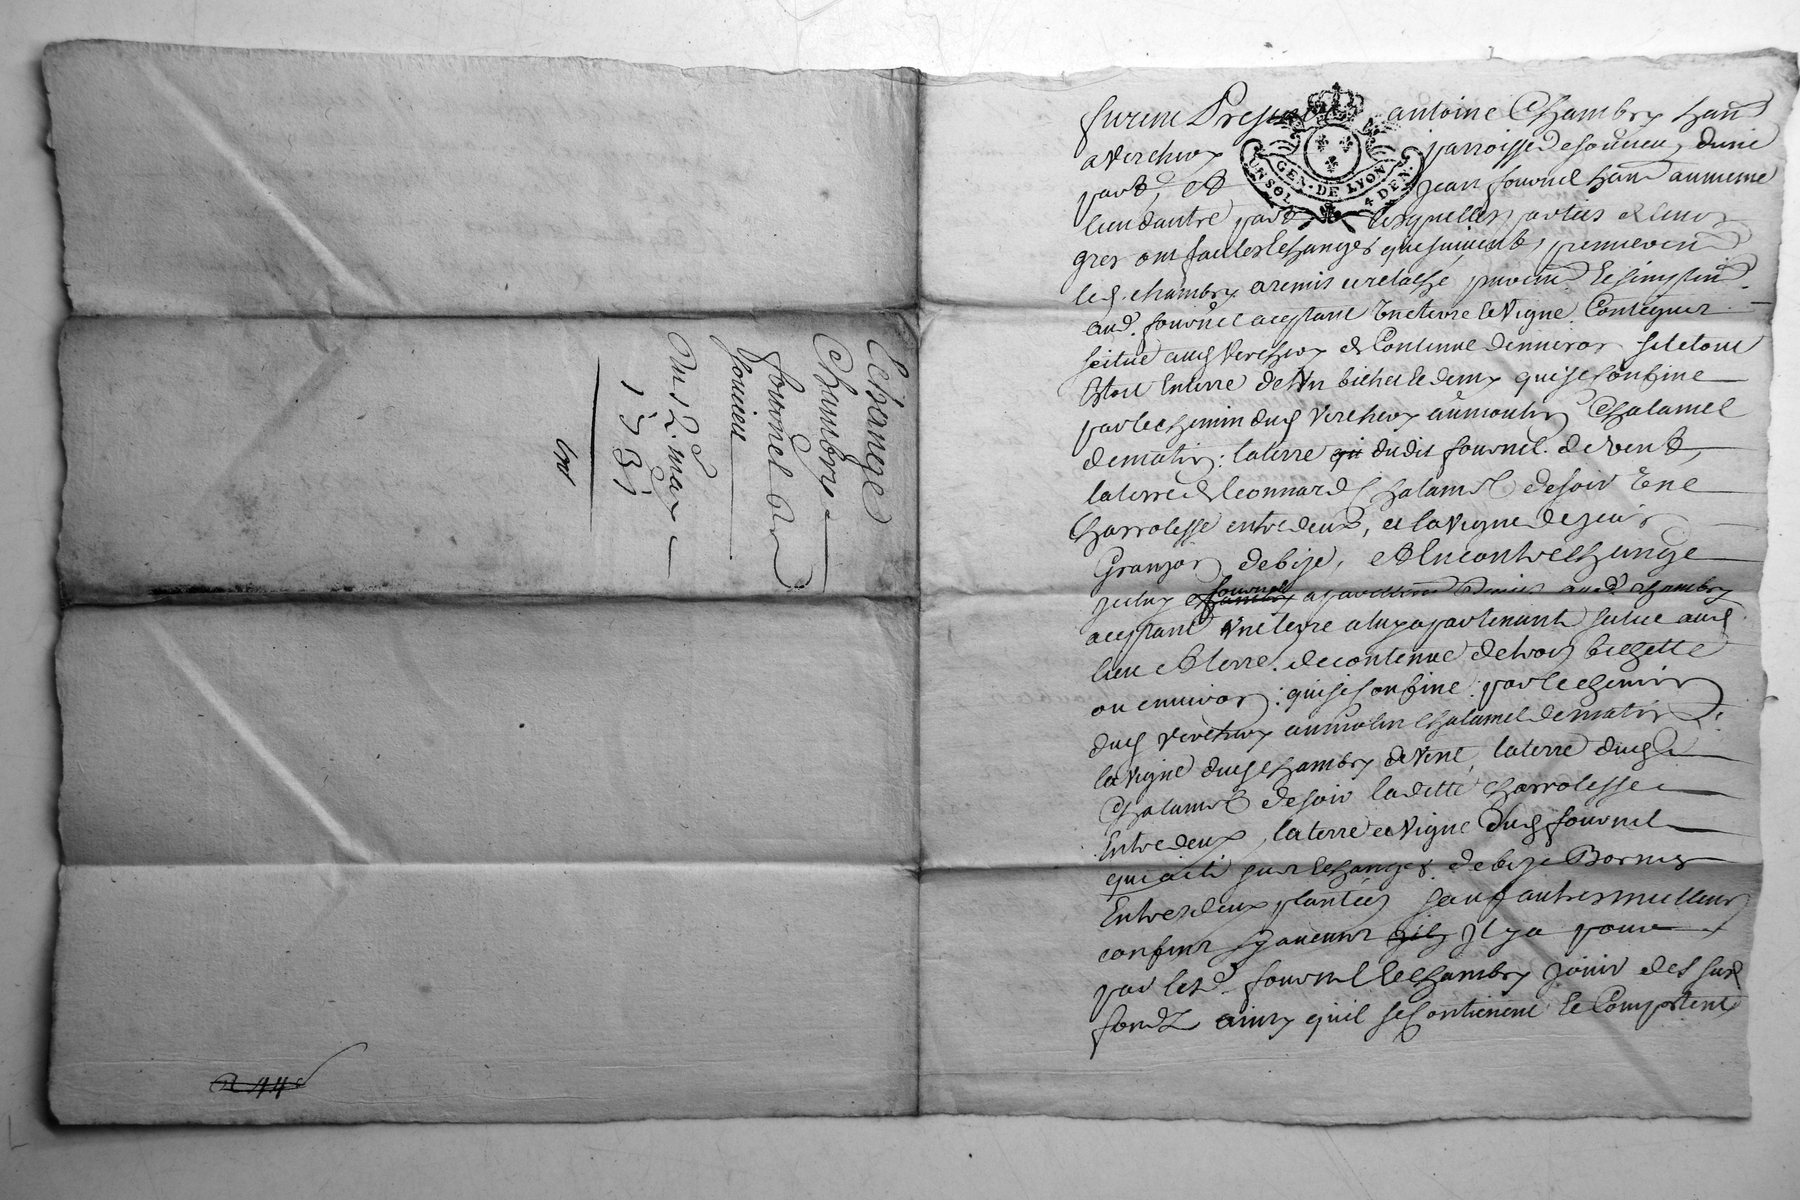 Echange
Chambry
fournel
Soucieu
Du 2 may
1731
2 44
furent Presents antoine Chambry hant
a Verchery parroisse de soucieu, dune
part, et jean fournel hant au mesme
lieu dautre part lesquelles parties de leurs
gres ont fait les Echanges que suivent, premierent
led. chambry a remis et relasche purem. Et simplem.
aud. fournel aceptant Une terre et Vigne Contigues
scitué aud Verchery de Contenue denviron
Enterre de Un bichet et demy qui se Confine
par le chemin dud Verchery au moulin Chalamel
de matin: la terre dudit fournel de vent,
la terre de leonnard Chalamel de soir Une
Charrolesse entre deux, et la vigne de jean
Granjon de bize, Et En contre Echange
jceluy fournel aud chambry
aceptant Une terre a luy apartenant scitue aud
lieu Et terre de contenue de trois bichette
ou environ: qui se Confine par le chemin
dud Verchery au moulin Chalamel de matin:
la vigne dud Chambry de Vent, la terre dud
Chalamel de soir ladette Charrolesse
Entre deux, la terre et Vigne dud fournel
Echanges de bize Bornes
Entre deux plantées sauf autres meilleurs
confins sy aucuns jl y a pour
par lesd. fournel Et Chambry jouir desd sud
fondz ainsy quil se Contienent Et Comportent
ONSOL GEN. DE LYON 4 DEN.